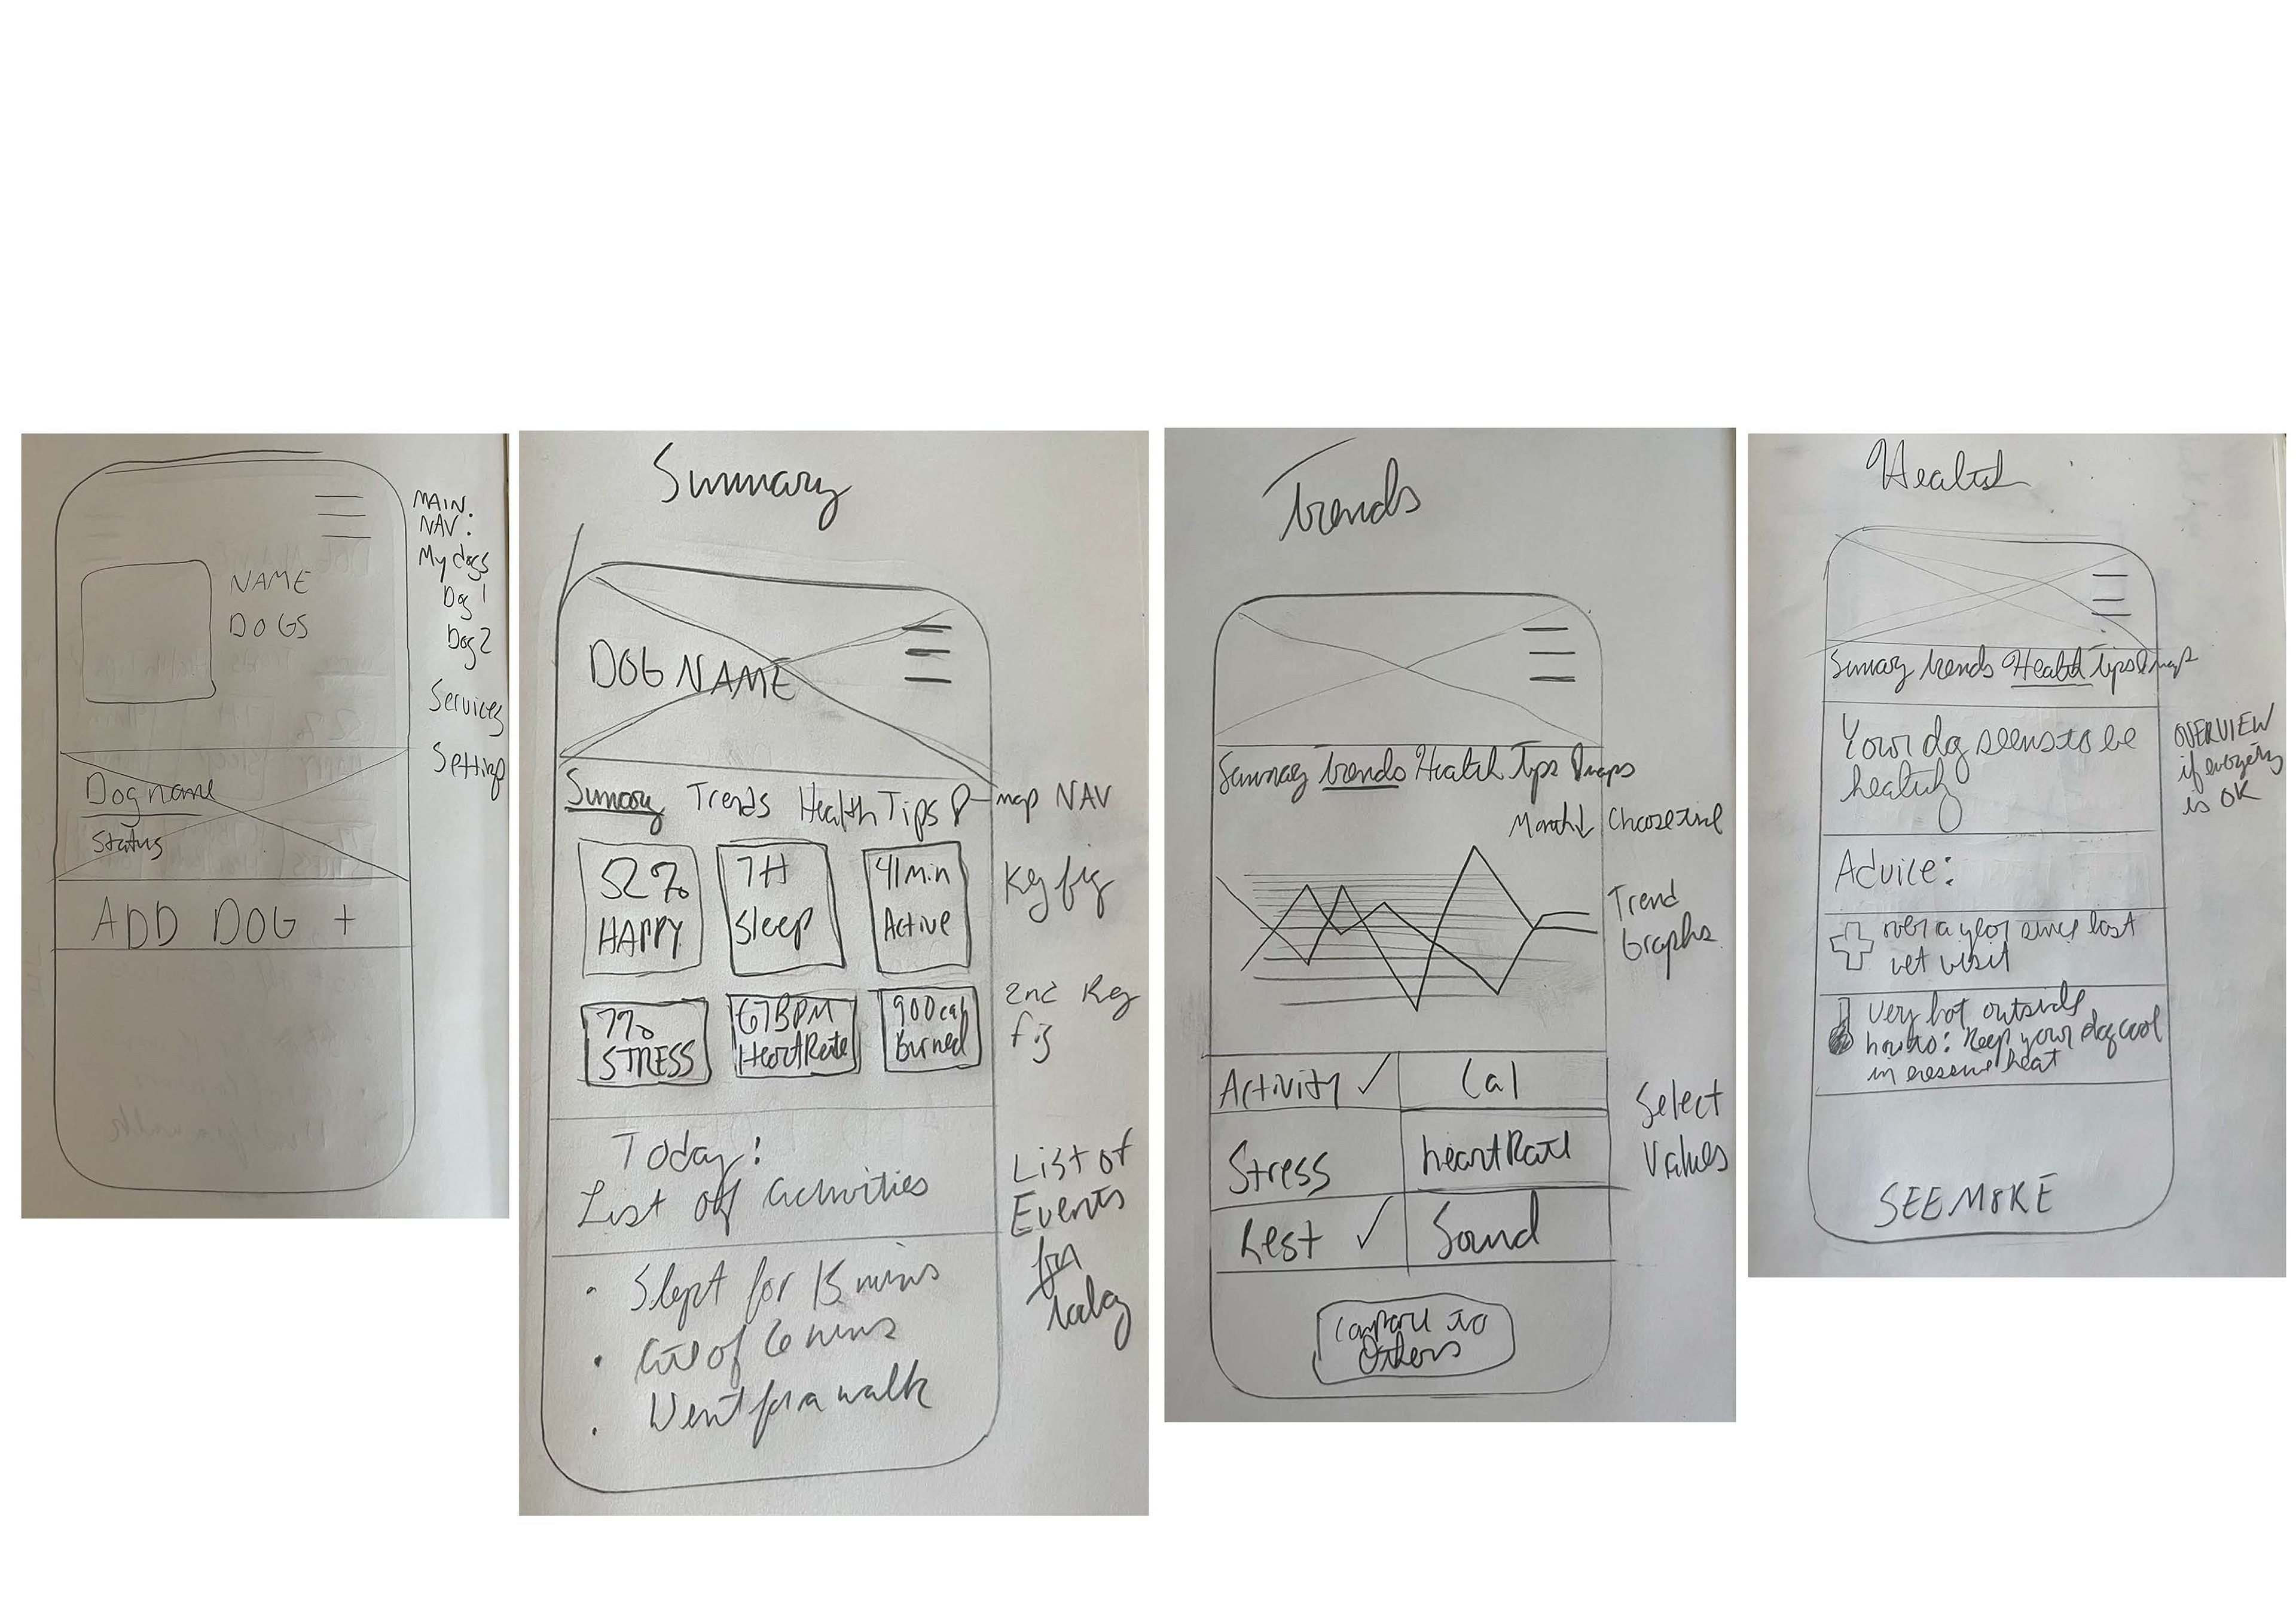 MAIN.
NAV:
My dogs
Dog 1
Dog 2
Services
Settings
NAME
DOGS
Dog name
Status
ADD DOG +
Summary
DOG NAME
Sumary Trends Health Tips map NAV
52% HAPPY
7H Sleep
41min Active
Key fig
7% STRESS
67BPM HeartRate
900cal Burned
2nd Key fig
Today:
List of activities
List of
Events
for
today
• Slept for 15 mins
• of 6 mins
• Went for a walk
Trends
Summay trends Health Tips maps
Month ↓
Choose
Trend
Graphs
Activity ✓ Cal
Stress heartRate
Rest ✓ Sound
Select
Values
to
Others
Health
Sumary trends Health Tips map
Your dog seems to be
healthy
OVERVIEW
if
is OK
Advice:
over a year since last
vet visit
Very hot outside
how to: Keep your dog cool
in heat
SEE MORE